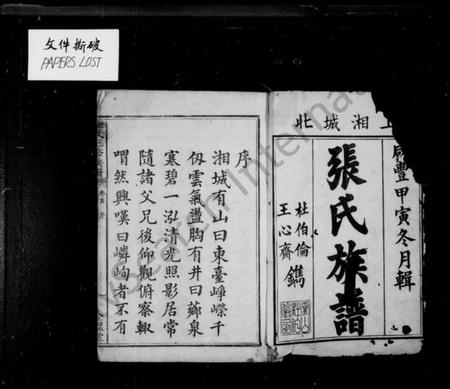 文件撕破
PAPERS LOST
上湘城北
咸豐甲寅冬月輯
張氏族譜
杜伯倫
王心齋 鐫
序
湘城有山曰東臺崢嶸千
仭雲氣盪胸有井曰薌泉
寒碧一泓清光照影居常
隨諸父兄後仰觀俯察輙
喟然興嘆曰嶙峋者不有